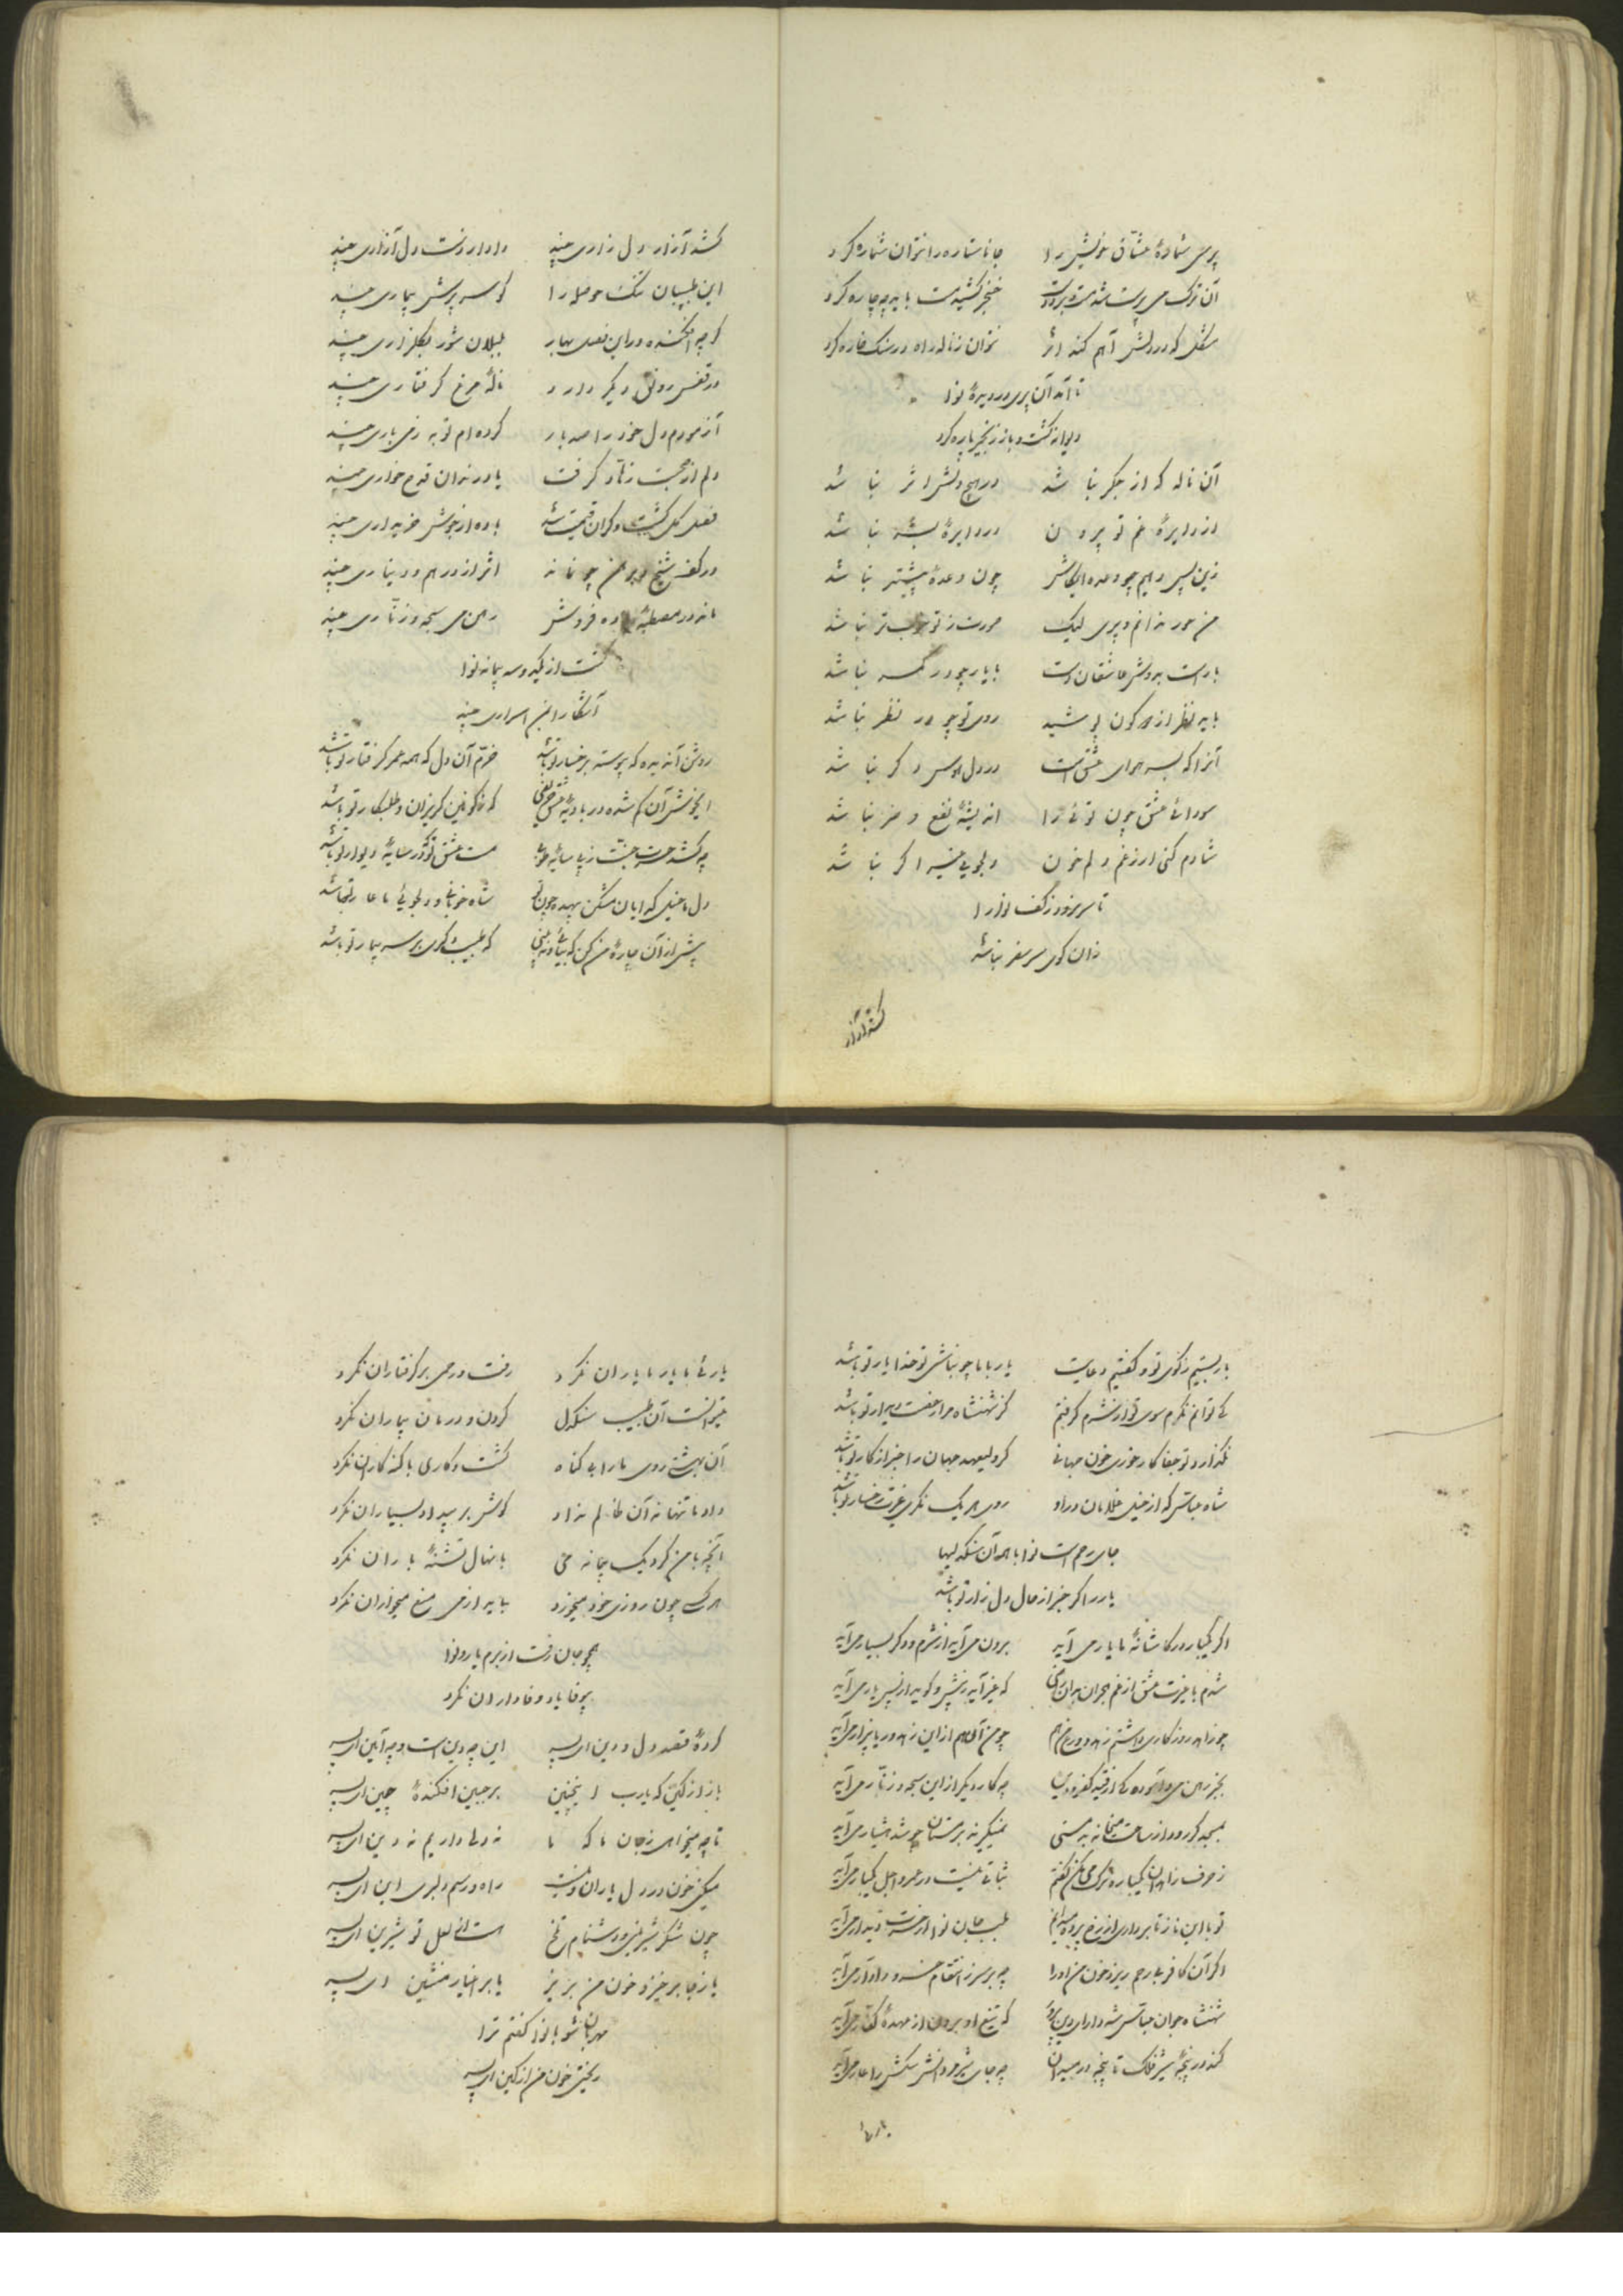 پرسی شمارهٔ عشاق خویش را جانا ستاره را نتوان شماره کرد
آن ترک می پرست شد مست خنجر کشید مست باید چه چاره کرد
مشکل که در دلش آهم کند اثر نتوان ز ناله راه در سنگ خاره کرد
تا آمد آن پری در دیدهٔ نوا
دیوانه گشت و باز زنجیر پاره کرد
آن ناله که از جگر نباشد در هیچ دلش اثر نباشد
از دایرهٔ غم تو بیرون در دایرهٔ بشر نباشد
زین پس دهیم چو وعده ایکاش چون وعدهٔ پیشتر نباشد
من حور ندانم و پری لیک حورت ز تو خوبتر نباشد
بار است بدوش عاشقان دست با یار چو در کمر نباشد
باید نظر از دو کون پوشید روی تو چو در نظر نباشد
آنرا که بسر هوای عشق است در دل هوس دگر نباشد
سودائی عشق چون توئی را اندیشهٔ نفع و ضر نباشد
شادم کنی ار ز غم دلم خون دلجوئی غیر اگر نباشد
تا سر نرود ز کف نوا را
زان کوی سر سفر نباشد
کشد آزار
کشد آزار دل زاری چند دادار دست دل آزاری چند
این طبیبان تنک حوصله را کو سر پرسش بیماری چند
گرچه افکنده در این فصل بهار بلبلان شور بگلزاری چند
در قفس رونق دیگر دارد نالهٔ مرغ گرفتاری چند
آزمودم دل خود را صد بار کرده ام توبه ز می باری چند
دلم از صحبت زهاد گرفت یاد رندان قدح خواری چند
فصل گل گشت و گران قیمت شد باده از جوش خریداری چند
در کف شیخ و برهمن چو نماند اثر از درهم و دیناری چند
ماند در مصطبهٔ باده فروش رهن می سبحه و زناری چند
گشت از یک دو سه پیمانه نوا
آشکارا بمن اسراری چند
روشن آندیده که پیوسته برخسار تو باشد خرم آن دل که همه عمر گرفتار تو باشد
ایخوش آن گم شده در بادیهٔ عشق که ز کونین گریزان و طلبکار تو باشد
چه کشد حسرت جنت ز پی سایهٔ طوبی مست عشق تو که در سایهٔ دیوار تو باشد
دل ما خیلی که ایمان شکن چون تو شاه خوبانی و دلجوئی ما عار تو باشد
پیش از آن چارهٔ من کن که بیائی و نه بینی که طبیب گوی بر سر بیمار تو باشد
بار بستیم ز کوی تو و گفتیم دعایت یار با ما چو نباشی تو خدا یار تو باشد
کی توانم نگرم سوی تو از شرم گرفتم کز شهنشاه مرا رخصت دیدار تو باشد
نگذارد تو جفا کار خوری خون جهانی گر ولیعهد جهان را خبر از کار تو باشد
شاه عباس که از خیل غلامان در او روی هر یک نگری غیرت رخسار تو باشد
جای رحم است نوا با همه آن سنگدلیها
یار را گر خبر از حال دل زار تو باشد
اگر یکبار در کاشانهٔ ما یار می آید برون می آید از شرم و دگر بسیار می آید
شدم با غیرت عشق از غم هجران که غیر آید ز پیش و گوید از پس یار می آید
چو زاهد روزگاری داشتم زهد و ورع چو من آن هم از این زهد ریا بیزار می آید
بجز رهن می و آسوده گی از قید کفر و دین چه کار دیگر از این سبحه و زنار می آید
بمسجد گر رود از ساحت میخانه بدمستی نمیگیرند بر مستان چو شد هشیار می آید
ز حرف زاهدان یکباره ترک می نگفتم ثباتی نیست در عمر و اجل یکبار می آید
تو با این ناز تا برداری از رخ پرده بلب جان نوا از حسرت دیدار می آید
اگر آن کافر بیرحم ریزد خون من او را چه بر سر ز انتقام خسرو دادار می آید
شهنشاه جوان عباس شه دارای دین پرور که تیغ او برون از عهدهٔ کفار می آید
کند در پنجهٔ شیر فلک تا پنجه در میدان چه جای شیر مردانش سگش را عار می آید
یارئی با یار ما یاران نکرد رفت و رحمی بر گرفتاران نکرد
میتوانست آن طبیب سنگدل کردن و درمان بیماران نکرد
آن بهشتی روی ما را بی گناه کشت و کاری با گنه کاران نکرد
داد ما تنها نه آن ظالم نداد گوش بر بیداد بسیاران نکرد
آنچه با من کرد یک پیمانه می با نهال تشنهٔ باران نکرد
هر کسی چون روزی خود میخورد باید از می منع میخواران نکرد
همچو جان رفت از برم یار و نوا
بیوفا یاد وفاداران نکرد
کردهٔ قصد دل و دین ای پسر این چه دین است و چه آئین ای پسر
باز از کین که یارب اینچنین بر جبین افکندهٔ چین ای پسر
تا چه میخواهی ز جان ما که ما نه دلی داریم نه دین ای پسر
میکنی خون در دل یاران و نیست راه و رسم دلبری این ای پسر
چون شکر شیرینی و دشنام تلخ است از لعل تو شیرین ای پسر
یا ز جا برخیز و خون من بریز یا بر اغیار منشین ای پسر
مهربان شو با نوا گفتم ترا
ریختی خون من از کین ای پسر